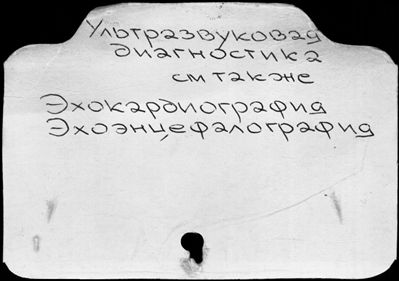 Ультразвуковая
диагностика
см также
Эхокардиография
Эхоэнцефалография